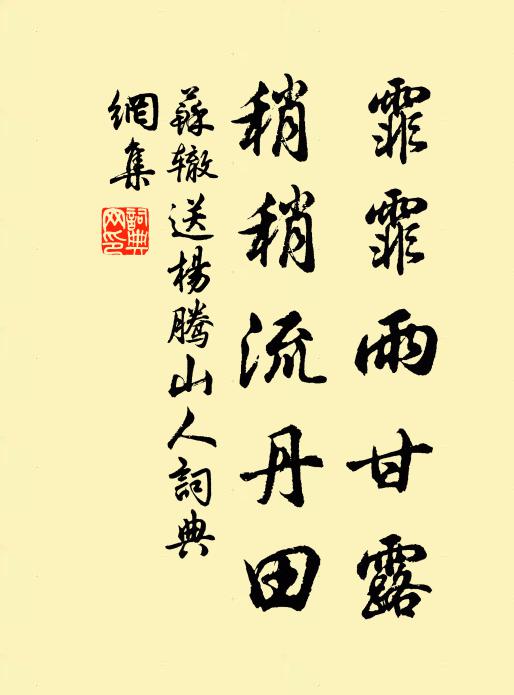 霏霏雨甘露
稍稍流丹田
蘇辙送楊騰山人詞典
網集
詞典
网印